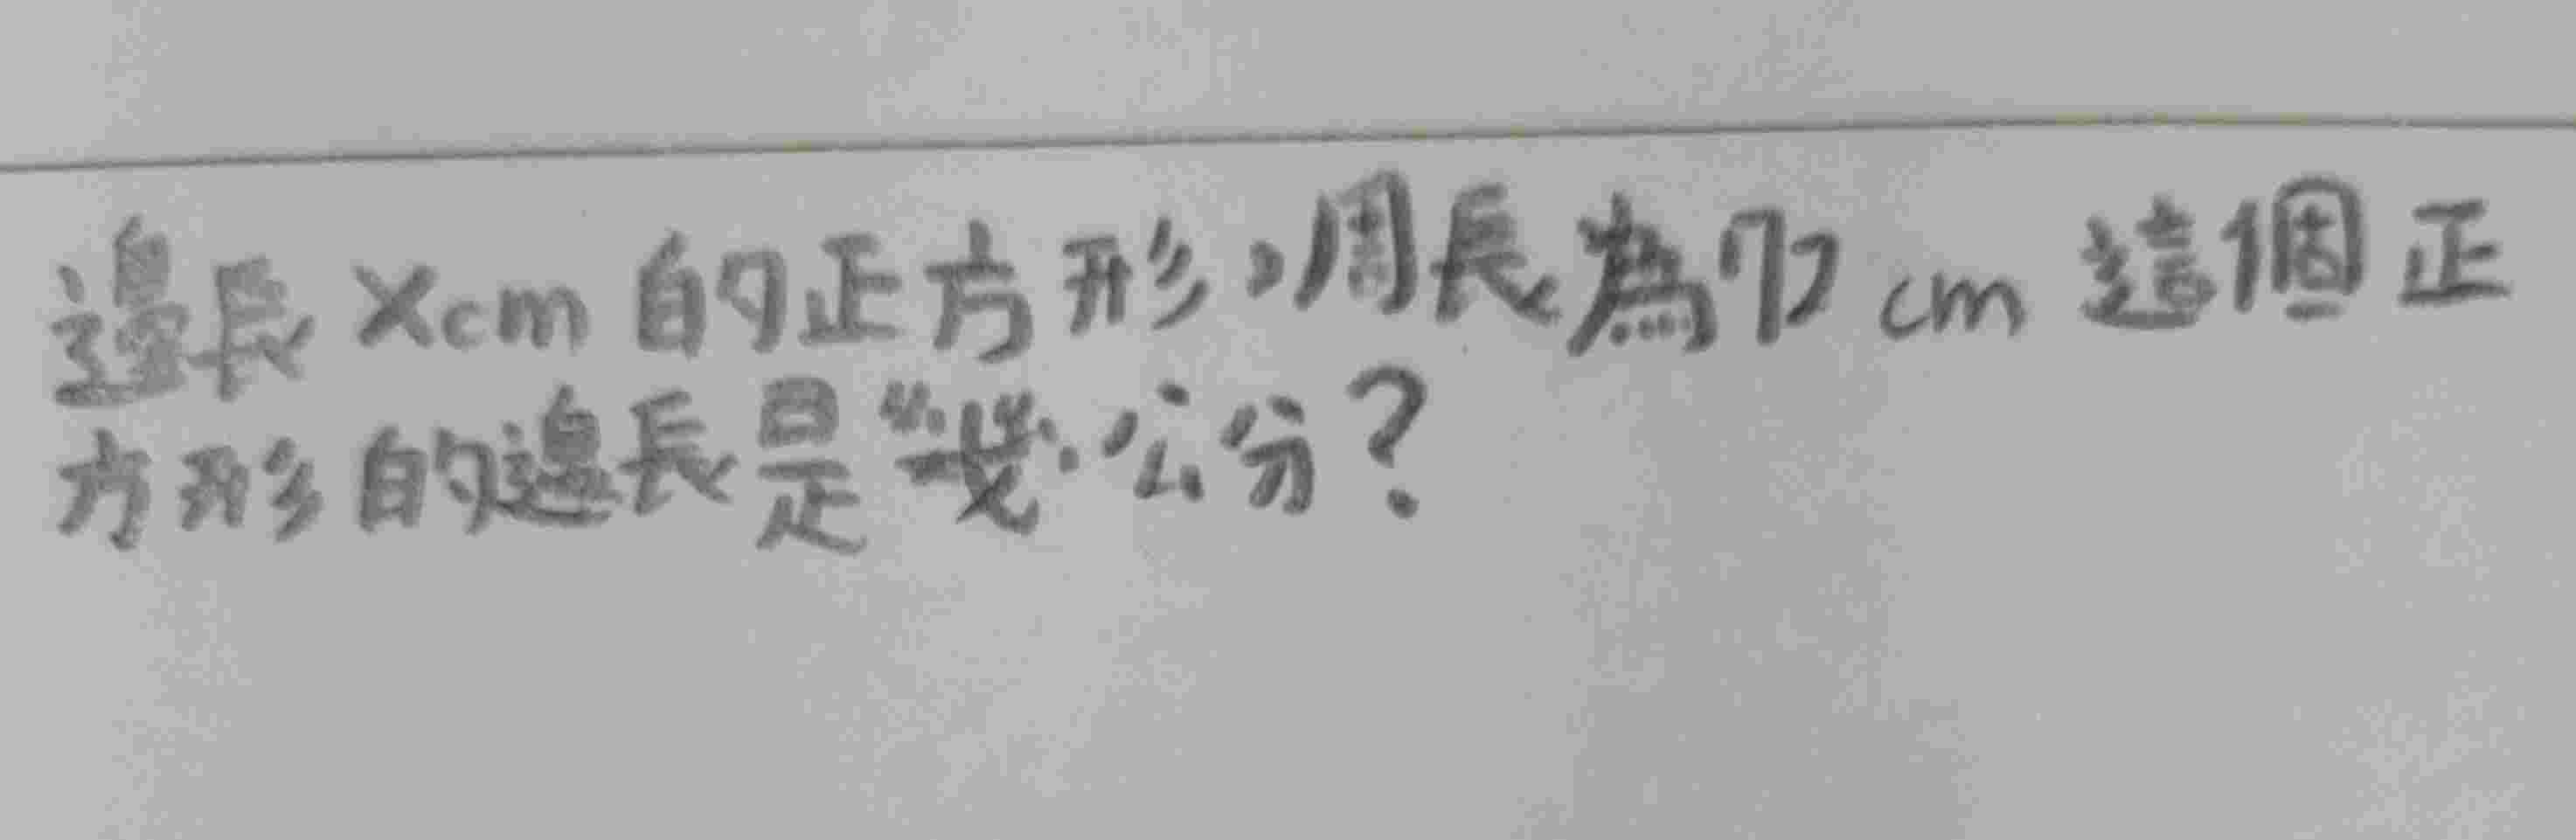 邊長Xcm的正方形,周長為72cm這個正
方形的邊長是幾公分?